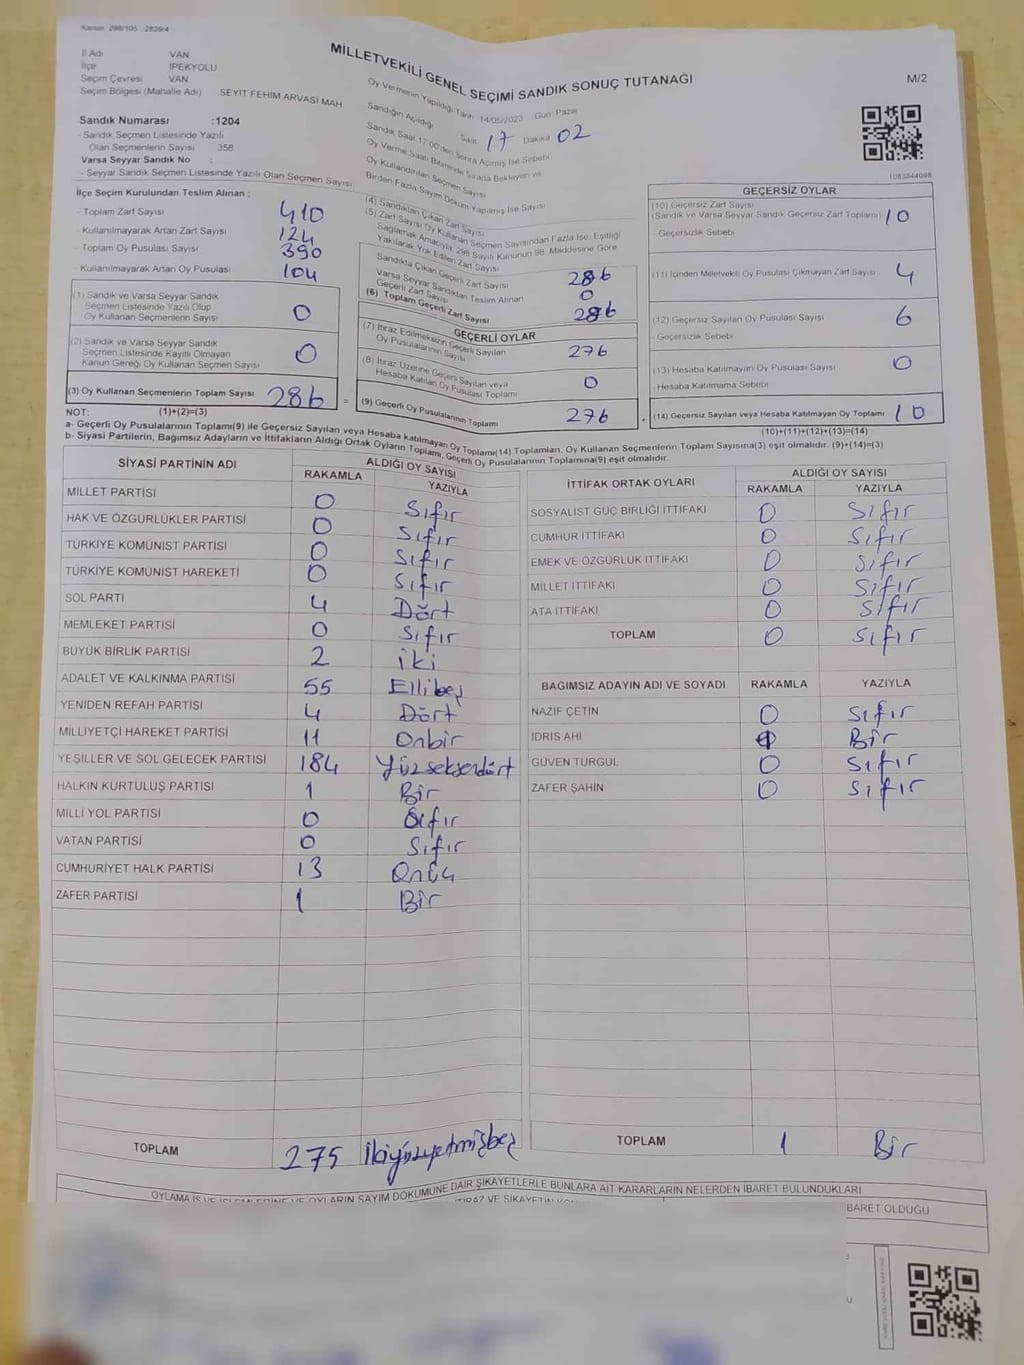 Kanun: 298/105 , 2839/4
MİLLETVEKİLİ GENEL SEÇİMİ SANDIK SONUÇ TUTANAĞI
M/2
İl Adı VAN
İlçe İPEKYOLU
Seçim Çevresi VAN
Seçim Bölgesi (Mahalle Adı) SEYİT FEHİM ARVASİ MAH
Sandık Numarası :1204
- Sandık Seçmen Listesinde Yazılı
Olan Seçmenlerin Sayısı 358
Varsa Seyyar Sandık No :
- Seyyar Sandık Seçmen Listesinde Yazılı Olan Seçmen Sayısı
Oy Vermenin Yapıldığı Tarih 14/05/2023 Gün: Pazar
Sandığın Açıldığı Saat 17 Dakika 02
Sandık Saat 17:00'den Sonra Açılmış İse Sebebi
Oy Verme Saati Bitiminde Sırada Bekleyen ve
Oy Kullandırılan Seçmen Sayısı
Birden Fazla Sayım Döküm Yapılmış İse Sayısı
1083844098
İlçe Seçim Kurulundan Teslim Alınan :
- Toplam Zarf Sayısı 410
- Kullanılmayarak Artan Zarf Sayısı 124
- Toplam Oy Pusulası Sayısı 390
- Kullanılmayarak Artan Oy Pusulası 104
(1) Sandık ve Varsa Seyyar Sandık
Seçmen Listesinde Yazılı Olup
Oy Kullanan Seçmenlerin Sayısı 0
(2) Sandık ve Varsa Seyyar Sandık
Seçmen Listesinde Kayıtlı Olmayan
Kanun Gereği Oy Kullanan Seçmen Sayısı 0
(3) Oy Kullanan Seçmenlerin Toplam Sayısı 286 =
(4) Sandıktan Çıkan Zarf Sayısı
(5) Zarf Sayısı Oy Kullanan Seçmen Sayısından Fazla İse; Eşitliği
Sağlamak Amacıyla, 298 Sayılı Kanunun 98. Maddesine Göre
Yakılarak Yok Edilen Zarf Sayısı
Sandıkta Çıkan Geçerli Zarf Sayısı 286
Varsa Seyyar Sandıktan Teslim Alınan
Geçerli Zarf Sayısı 0
(6) Toplam Geçerli Zarf Sayısı 286
GEÇERLİ OYLAR
(7) İtiraz Edilmeksizin Geçerli Sayılan
Oy Pusulalarının Sayısı 276
(8) İtiraz Üzerine Geçerli Sayılan veya
Hesaba Katılan Oy Pusulası Toplamı 0
(9) Geçerli Oy Pusulalarının Toplamı 276
GEÇERSİZ OYLAR
(10) Geçersiz Zarf Sayısı
(Sandık ve Varsa Seyyar Sandık Geçersiz Zarf Toplamı) 10
- Geçersizlik Sebebi
(11) İçinden Milletvekili Oy Pusulası Çıkmayan Zarf Sayısı 4
(12) Geçersiz Sayılan Oy Pusulası Sayısı 6
- Geçersizlik Sebebi
(13) Hesaba Katılmayan Oy Pusulası Sayısı 0
- Hesaba Katılmama Sebebi
(14) Geçersiz Sayılan veya Hesaba Katılmayan Oy Toplamı 10
(10)+(11)+(12)+(13)=(14)
NOT: (1)+(2)=(3)
a- Geçerli Oy Pusulalarının Toplamı(9) ile Geçersiz Sayılan veya Hesaba katılmayan Oy Toplamı(14) Toplamları, Oy Kullanan Seçmenlerin Toplam Sayısına(3) eşit olmalıdır. (9)+(14)=(3)
b- Siyasi Partilerin, Bağımsız Adayların ve İttifakların Aldığı Ortak Oyların Toplamı, Geçerli Oy Pusulalarının Toplamına(9) eşit olmalıdır.
SİYASİ PARTİNİN ADI ALDIĞI OY SAYISI
RAKAMLA YAZIYLA
MİLLET PARTİSİ 0 Sıfır
HAK VE ÖZGÜRLÜKLER PARTİSİ 0 Sıfır
TÜRKİYE KOMÜNİST PARTİSİ 0 Sıfır
TÜRKİYE KOMÜNİST HAREKETİ 0 Sıfır
SOL PARTİ 4 Dört
MEMLEKET PARTİSİ 0 Sıfır
BÜYÜK BİRLİK PARTİSİ 2 iki
ADALET VE KALKINMA PARTİSİ 55 Ellibeş
YENİDEN REFAH PARTİSİ 4 Dört
MİLLİYETÇİ HAREKET PARTİSİ 11 Onbir
YEŞİLLER VE SOL GELECEK PARTİSİ 184 Yüzseksendört
HALKIN KURTULUŞ PARTİSİ 1 Bir
MİLLİ YOL PARTİSİ 0 Sıfır
VATAN PARTİSİ 0 Sıfır
CUMHURİYET HALK PARTİSİ 13 Onüç
ZAFER PARTİSİ 1 Bir
TOPLAM 275 İkiyüzyetmişbeş
İTTİFAK ORTAK OYLARI ALDIĞI OY SAYISI
RAKAMLA YAZIYLA
SOSYALİST GÜÇ BİRLİĞİ İTTİFAKI 0 Sıfır
CUMHUR İTTİFAKI 0 Sıfır
EMEK VE ÖZGÜRLÜK İTTİFAKI 0 Sıfır
MİLLET İTTİFAKI 0 Sıfır
ATA İTTİFAKI 0 Sıfır
TOPLAM 0 Sıfır
BAĞIMSIZ ADAYIN ADI VE SOYADI RAKAMLA YAZIYLA
NAZİF ÇETİN 0 Sıfır
İDRİS AHİ 1 Bir
GÜVEN TURGUL 0 Sıfır
ZAFER ŞAHİN 0 Sıfır
TOPLAM 1 Bir
OYLAMA İŞ VE İŞLEMLERİNE VE OYLARIN SAYIM DÖKÜMÜNE DAİR ŞİKAYETLERLE BUNLARA AİT KARARLARIN NELERDEN İBARET BULUNDUKLARI
İTİRAZ VE ŞİKAYETİN
BARET OLDUĞU